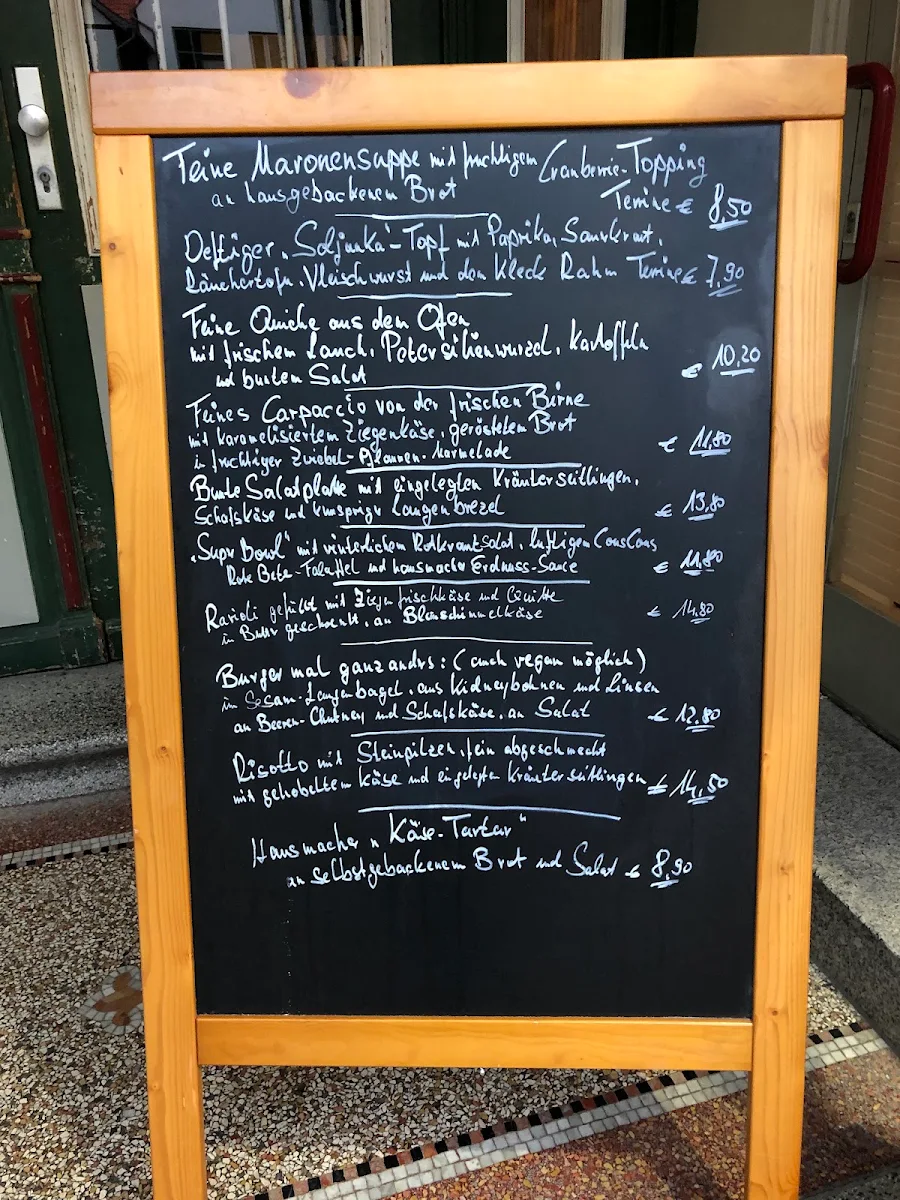 Feine Maronensuppe mit fruchtigem Cranberrie-Topping
an hausgebackenem Brot Terrine € 8,50
Deftiger „Soljanka“-Topf mit Paprika, Sauerkraut,
Räuchertofu, Vleischwurst und dem Kleck Rahm Terrine € 7,90
Feine Quiche aus dem Ofen
mit frischem Lauch, Petersilienwurzel, Kartoffeln € 10,20
und buntem Salat
Feines Carpaccio von der frischen Birne
mit karamelisiertem Ziegenkäse, geröstetem Brot € 11,80
in fruchtiger Zwiebel-Pflaumen-Marmelade
Bunte Salatplatte mit eingelegten Kräuterseitlingen,
Schafskäse und knuspriger Laugenbrezel € 13,80
„Supr Bowl“ mit winterlichem Rotkrautsalat, luftigem CousCous
Rote Bete-Falaffel und hausmacher Erdnuss-Sauce € 11,80
Ravioli gefüllt mit Ziegenfrischkäse und Quitte
in Butter geschwenkt, an Blauschimmelkäse € 14,80
Burger mal ganz andrs: (auch vegan möglich)
im Sesam-Laugenbagel, aus Kidneybohnen und Linsen
an Beeren-Chutney und Schafskäse, an Salat € 12,80
Risotto mit Steinpilzen, fein abgeschmeckt
mit gehobeltem Käse und eingelegten Kräuterseitlingen € 14,50
Hausmacher „Käse-Tartar“
an selbstgebackenem Brot und Salat € 8,90